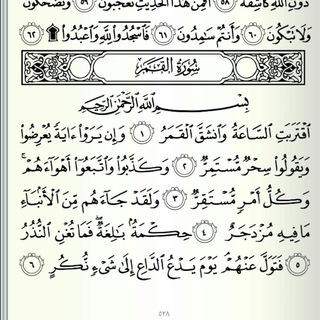 دُونِ ٱللَّهِ كَاشِفَةٌ ٥٨ أَفَمِنْ هَٰذَا ٱلْحَدِيثِ تَعْجَبُونَ ٥٩ وَتَضْحَكُونَ
وَلَا تَبْكُونَ ٦٠ وَأَنتُمْ سَٰمِدُونَ ٦١ فَٱسْجُدُوا۟ لِلَّهِ وَٱعْبُدُوا۟ ۩ ٦٢
سُورَةُ ٱلْقَمَرِ
بِسْمِ ٱللَّهِ ٱلرَّحْمَٰنِ ٱلرَّحِيمِ
ٱقْتَرَبَتِ ٱلسَّاعَةُ وَٱنشَقَّ ٱلْقَمَرُ ١ وَإِن يَرَوْا۟ ءَايَةً يُعْرِضُوا۟
وَيَقُولُوا۟ سِحْرٌ مُّسْتَمِرٌّ ٢ وَكَذَّبُوا۟ وَٱتَّبَعُوٓا۟ أَهْوَآءَهُمْ ۚ
وَكُلُّ أَمْرٍ مُّسْتَقِرٌّ ٣ وَلَقَدْ جَآءَهُم مِّنَ ٱلْأَنۢبَآءِ
مَا فِيهِ مُزْدَجَرٌ ٤ حِكْمَةٌۢ بَٰلِغَةٌ ۖ فَمَا تُغْنِ ٱلنُّذُرُ
٥ فَتَوَلَّ عَنْهُمْ ۘ يَوْمَ يَدْعُ ٱلدَّاعِ إِلَىٰ شَىْءٍ نُّكُرٍ ٦
٥٢٨